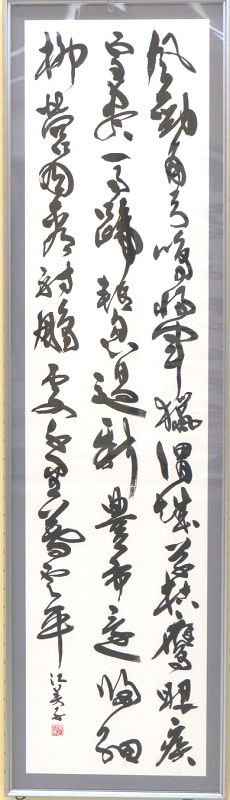 風勁角弓鳴將軍獵渭城草枯鷹眼疾
雪盡馬蹄輕忽過新豐市還歸細
柳營回看射鵰處千里暮雲平
江美子